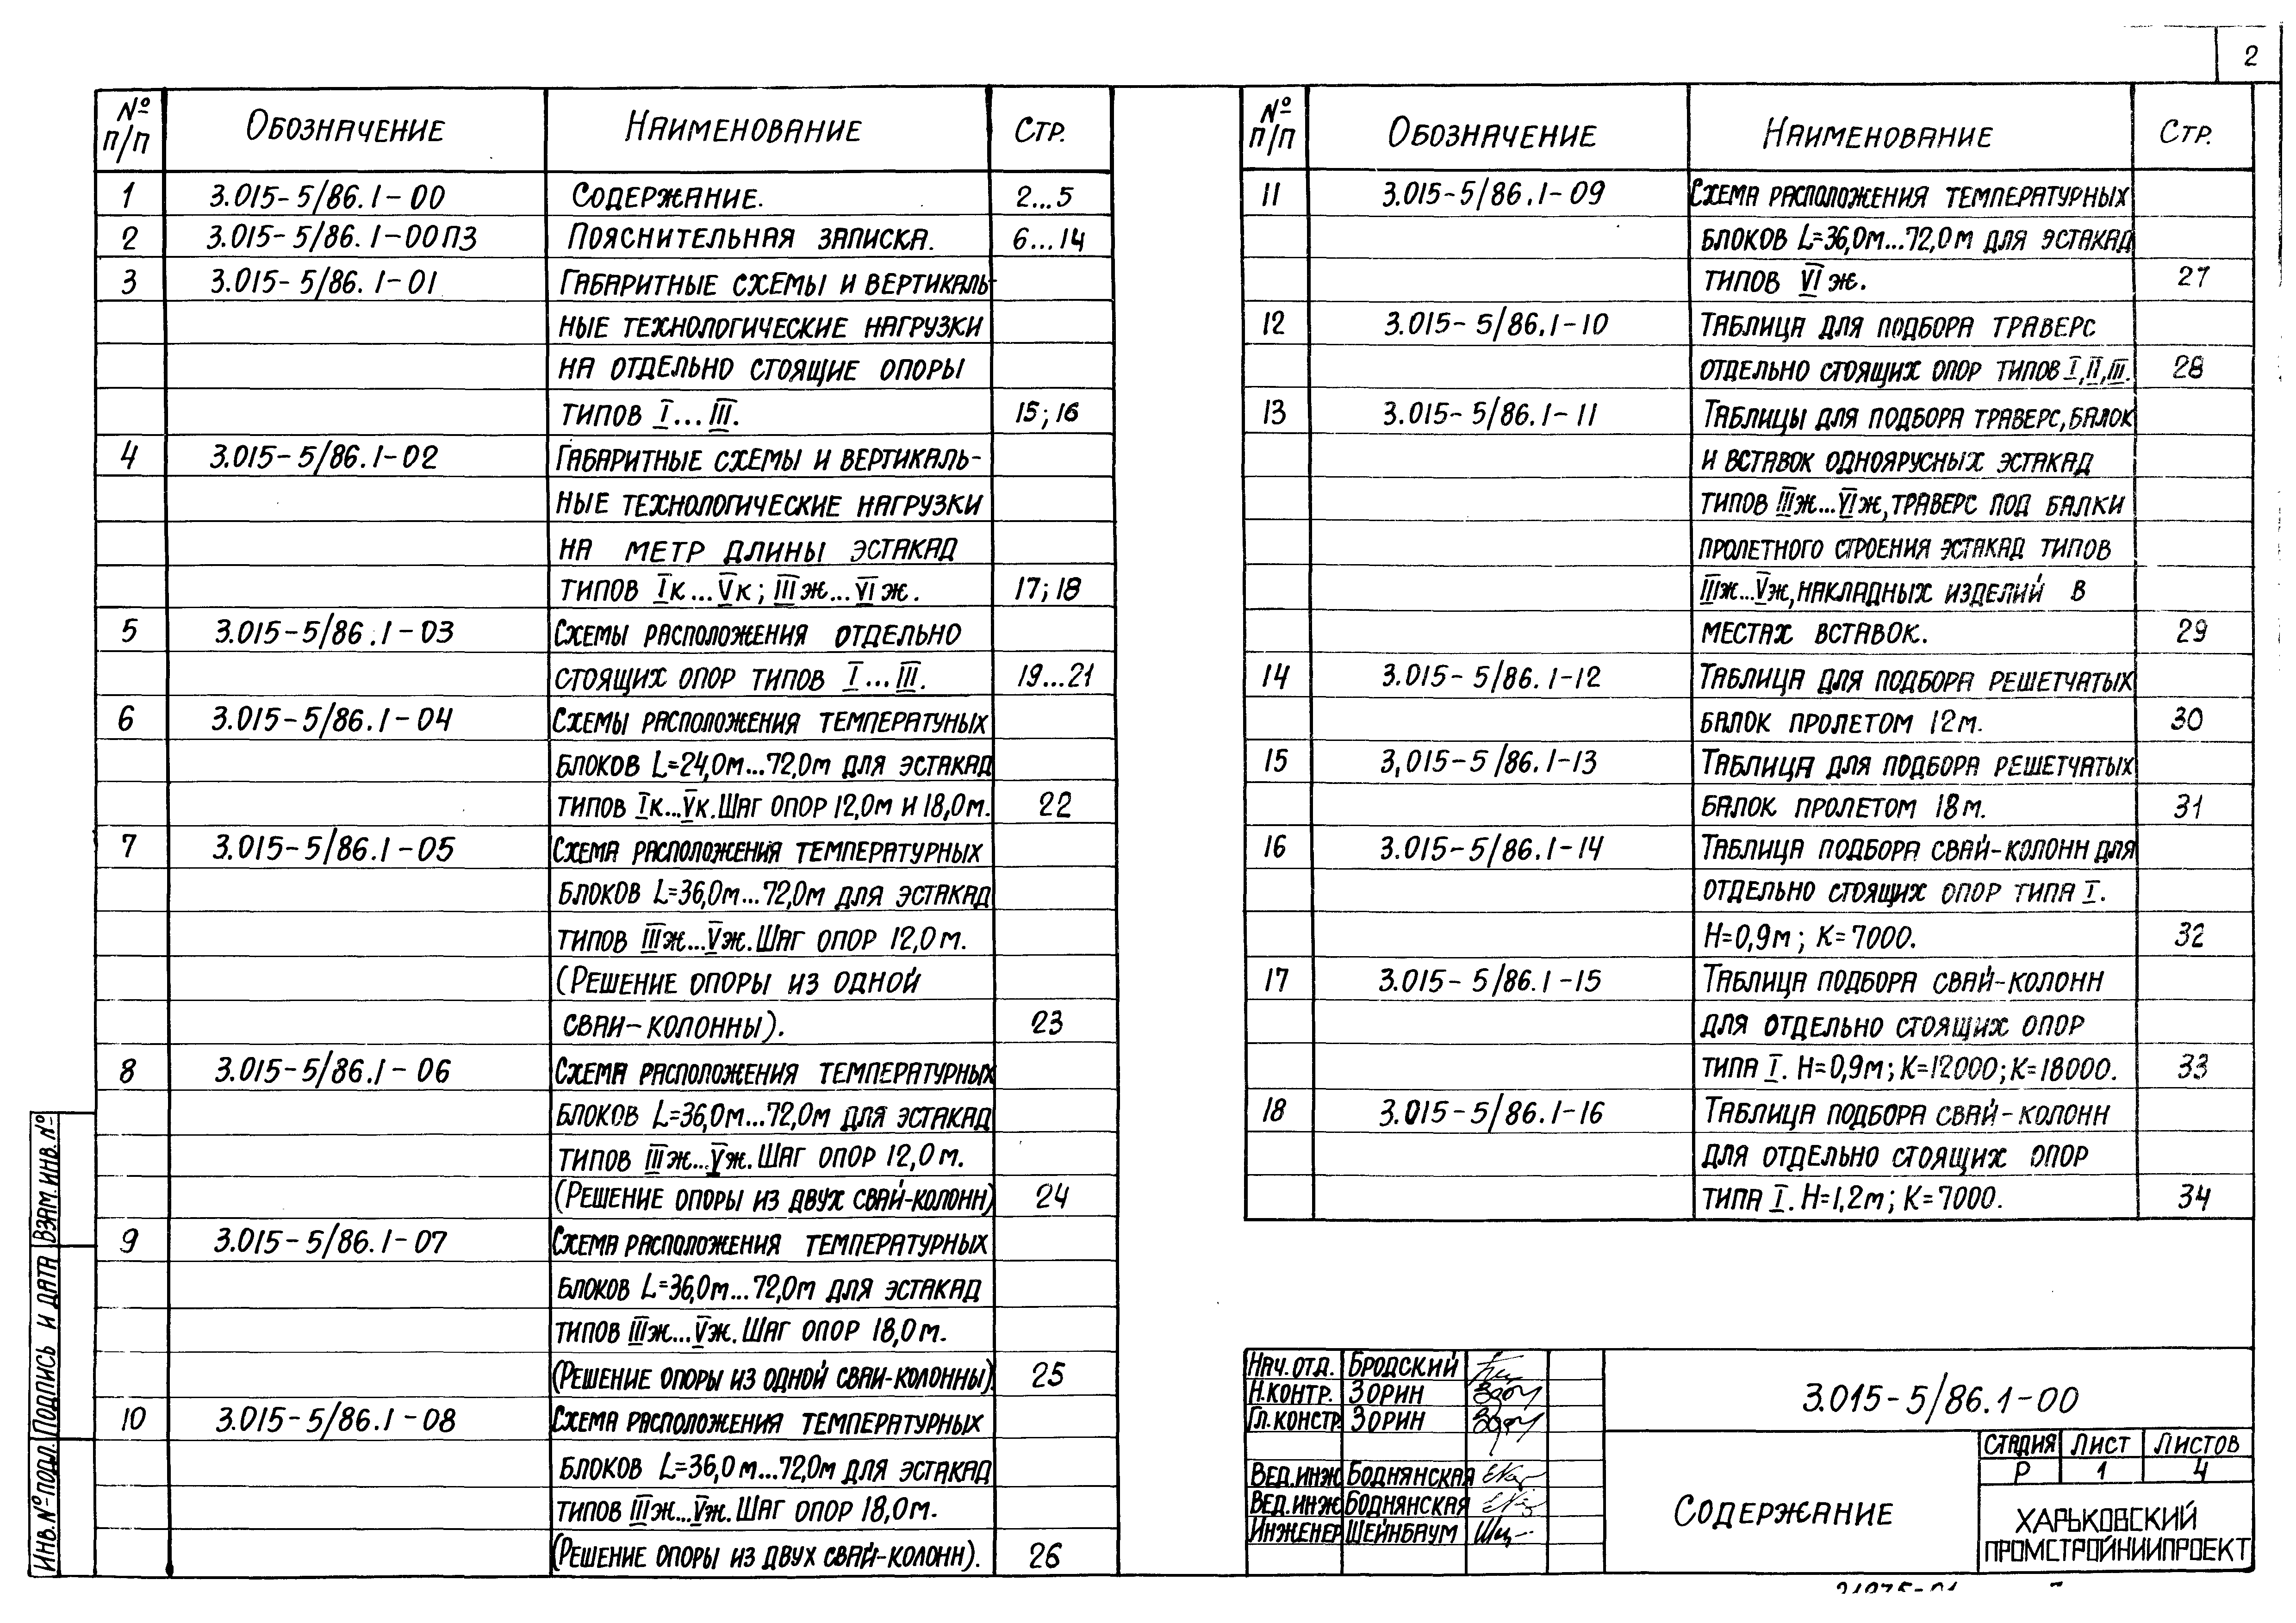 2
№ п/п Обозначение Наименование Стр.
1 3.015-5/86.1-00 Содержание. 2...5
2 3.015-5/86.1-00ПЗ Пояснительная записка. 6...14
3 3.015-5/86.1-01 Габаритные схемы и вертикаль-
ные технологические нагрузки
на отдельно стоящие опоры
типов I...III. 15;16
4 3.015-5/86.1-02 Габаритные схемы и вертикаль-
ные технологические нагрузки
на метр длины эстакад
типов Iк...Vк; IIIж...VIж. 17;18
5 3.015-5/86.1-03 Схемы расположения отдельно
стоящих опор типов I...III. 19...21
6 3.015-5/86.1-04 Схемы расположения температуных
блоков L=24,0м...72,0м для эстакад
типов Iк...Vк. Шаг опор 12,0м и 18,0м. 22
7 3.015-5/86.1-05 Схема расположения температурных
блоков L=36,0м...72,0м для эстакад
типов IIIж...Vж. Шаг опор 12,0м.
(Решение опоры из одной
сваи-колонны). 23
8 3.015-5/86.1-06 Схема расположения температурных
блоков L=36,0м...72,0м для эстакад
типов IIIж...Vж. Шаг опор 12,0м.
(Решение опоры из двух свай-колонн) 24
9 3.015-5/86.1-07 Схема расположения температурных
блоков L=36,0м...72,0м для эстакад
типов IIIж...Vж. Шаг опор 18,0м.
(Решение опоры из одной сваи-колонны). 25
10 3.015-5/86.1-08 Схема расположения температурных
блоков L=36,0м...72,0м для эстакад
типов IIIж...Vж. Шаг опор 18,0м.
(Решение опоры из двух свай-колонн). 26
№ п/п Обозначение Наименование Стр.
11 3.015-5/86.1-09 Схема расположения температурных
блоков L=36,0м...72,0м для эстакад
типов VIж. 27
12 3.015-5/86.1-10 Таблица для подбора траверс
отдельно стоящих опор типов I,II,III. 28
13 3.015-5/86.1-11 Таблицы для подбора траверс, балок
и вставок одноярусных эстакад
типов IIIж...VIж, траверс под балки
пролетного строения эстакад типов
IIIж...Vж, накладных изделий в
местах вставок. 29
14 3.015-5/86.1-12 Таблица для подбора решетчатых
балок пролетом 12м. 30
15 3,015-5/86.1-13 Таблица для подбора решетчатых
балок пролетом 18м. 31
16 3.015-5/86.1-14 Таблица подбора свай-колонн для
отдельно стоящих опор типа I.
H=0,9м; К=7000. 32
17 3.015-5/86.1-15 Таблица подбора свай-колонн
для отдельно стоящих опор
типа I. H=0,9м; К=12000; К=18000. 33
18 3.015-5/86.1-16 Таблица подбора свай-колонн
для отдельно стоящих опор
типа I. H=1,2м; К=7000. 34
Взам. инв. №
Подпись и дата
Инв. № подл.
Нач. отд. Бродский
Н. контр. Зорин
Гл. констр. Зорин
Вед. инж. Боднянская
Вед. инж. Боднянская
Инженер Шейнбаум
3.015-5/86.1-00
Содержание
Стадия Лист Листов
Р 1 4
Харьковский
ПромстройНИИпроект